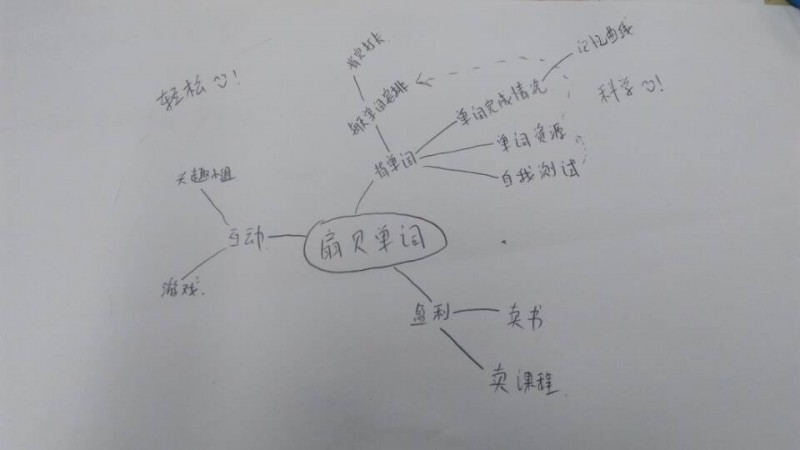 每天打卡
记忆曲线
轻松!
每天单词安排
单词完成情况
科学!
背单词
单词资源
自我测试
兴趣小组
互动
扇贝单词
游戏
盈利
卖书
卖课程